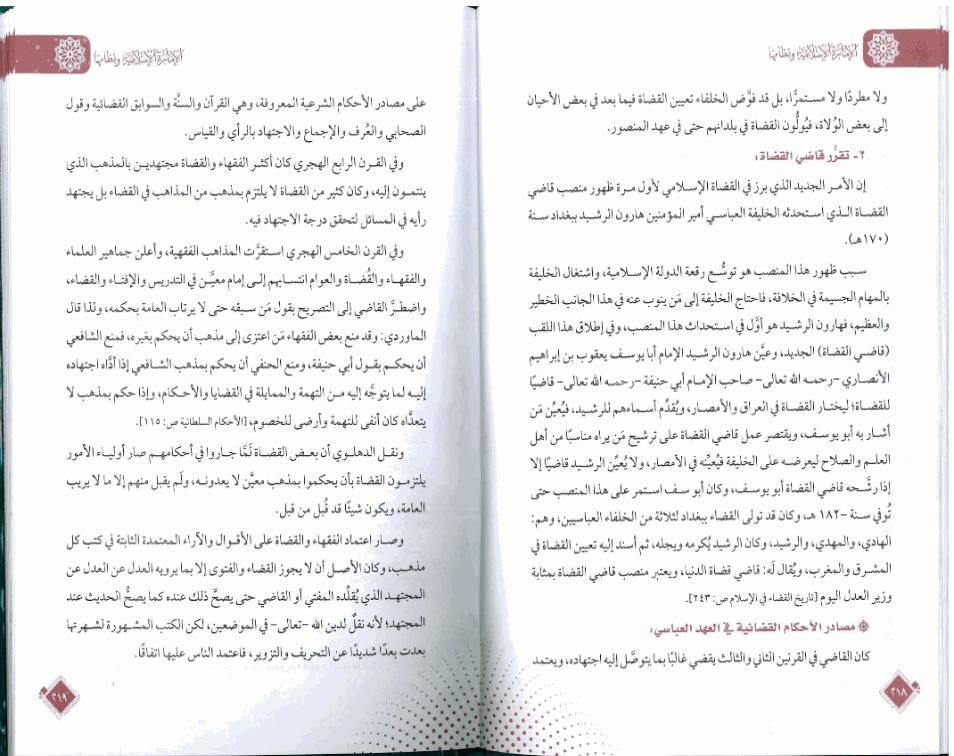 الإمارة الإسلامية ونظامها
ولا مطردًا ولا مستمرًّا، بل قد فوَّض الخلفاء تعيين القضاة فيما بعد في بعض الأحيان
إلى بعض الوُلاة، فيُولُّون القضاة في بلدانهم حتى في عهد المنصور.
٢- تقرُّر قاضي القضاة:
إن الأمر الجديد الذي برز في القضاء الإسلامي لأول مرة ظهور منصب قاضي
القضاة الذي استحدثه الخليفة العباسي أمير المؤمنين هارون الرشيد ببغداد سنة
(١٧٠هـ).
سبب ظهور هذا المنصب هو توسُّع رقعة الدولة الإسلامية، واشتغال الخليفة
بالمهام الجسيمة في الخلافة، فاحتاج الخليفة إلى مَن ينوب عنه في هذا الجانب الخطير
والعظيم، فهارون الرشيد هو أوَّل في استحداث هذا المنصب، وفي إطلاق هذا اللقب
(قاضي القضاة) الجديد، وعيَّن هارون الرشيد الإمام أبا يوسف يعقوب بن إبراهيم
الأنصاري -رحمه الله تعالى- صاحب الإمام أبي حنيفة -رحمه الله تعالى- قاضيًا
للقضاة؛ ليختار القضاة في العراق والأمصار، ويُقدِّم أسماءهم للرشيد، فيُعيِّن مَن
أشار به أبو يوسف، ويقتصر عمل قاضي القضاة على ترشيح مَن يراه مناسبًا من أهل
العلم والصلاح ليعرضه على الخليفة فيُعيِّنه في الأمصار، ولا يُعيِّن الرشيد قاضيًا إلا
إذا رشَّحه قاضي القضاة أبو يوسف، وكان أبو سف استمر على هذا المنصب حتى
تُوفي سنة -١٨٢ هـ، وكان قد تولى القضاء ببغداد لثلاثة من الخلفاء العباسيين، وهم:
الهادي، والمهدي، والرشيد، وكان الرشيد يُكرمه ويجله، ثم أسند إليه تعيين القضاة في
المشرق والمغرب، ويُقال لَه: قاضي قضاة الدنيا، ويعتبر منصب قاضي القضاة بمثابة
وزير العدل اليوم [تاريخ القضاء في الإسلام ص: ٢٤٣].
مصادر الأحكام القضائية في العهد العباسي:
كان القاضي في القرنين الثاني والثالث يقضي غالبًا بما يتوصَّل إليه اجتهاده، ويعتمد
٢١٨
الإمارة الإسلامية ونظامها
على مصادر الأحكام الشرعية المعروفة، وهي القرآن والسنَّة والسوابق القضائية وقول
الصحابي والعُرف والإجماع والاجتهاد بالرأي والقياس.
وفي القرن الرابع الهجري كان أكثر الفقهاء والقضاة مجتهدين بالمذهب الذي
ينتمون إليه، وكان كثير من القضاة لا يلتزم بمذهب من المذاهب في القضاء بل يجتهد
رأيه في المسائل لتحقق درجة الاجتهاد فيه.
وفي القرن الخامس الهجري استقرَّت المذاهب الفقهية، وأعلن جماهير العلماء
والفقهاء والقُضاة والعوام انتسابهم إلى إمام معيَّن في التدريس والإفتاء والقضاء،
واضطرَّ القاضي إلى التصريح بقول مَن سبقه حتى لا يرتاب العامة بحكمه، ولذا قال
الماوردي: وقد منع بعض الفقهاء مَن اعتزى إلى مذهب أن يحكم بغيره، فمنع الشافعي
أن يحكم بقول أبي حنيفة، ومنع الحنفي أن يحكم بمذهب الشافعي إذا أدَّاه اجتهاده
إليه لما يتوجَّه إليه من التهمة والممايلة في القضايا والأحكام، وإذا حكم بمذهب لا
يتعدَّاه كان أنفى للتهمة وأرضى للخصوم، [الأحكام السلطانية ص: ١١٥].
ونقل الدهلوي أن بعض القضاة لَمَّا جاروا في أحكامهم صار أولياء الأمور
يلتزمون القضاة بأن يحكموا بمذهب معيَّن لا يعدونه، ولَم يقبل منهم إلا ما لا يريب
العامة، ويكون شيئًا قد قُبل من قبل.
وصار اعتماد الفقهاء والقضاة على الأقوال والآراء المعتمدة الثابتة في كتب كل
مذهب، وكان الأصل أن لا يجوز القضاء والفتوى إلا بما يرويه العدل عن العدل عن
المجتهد الذي يُقلِّده المفتي أو القاضي حتى يصحَّ ذلك عنده كما يصحُّ الحديث عند
المجتهد؛ لأنه نقلٌ لدين الله -تعالى- في الموضعين، لكن الكتب المشهورة لشهرتها
بعدت بعدًا شديدًا عن التحريف والتزوير، فاعتمد الناس عليها اتفاقًا.
٢١٩